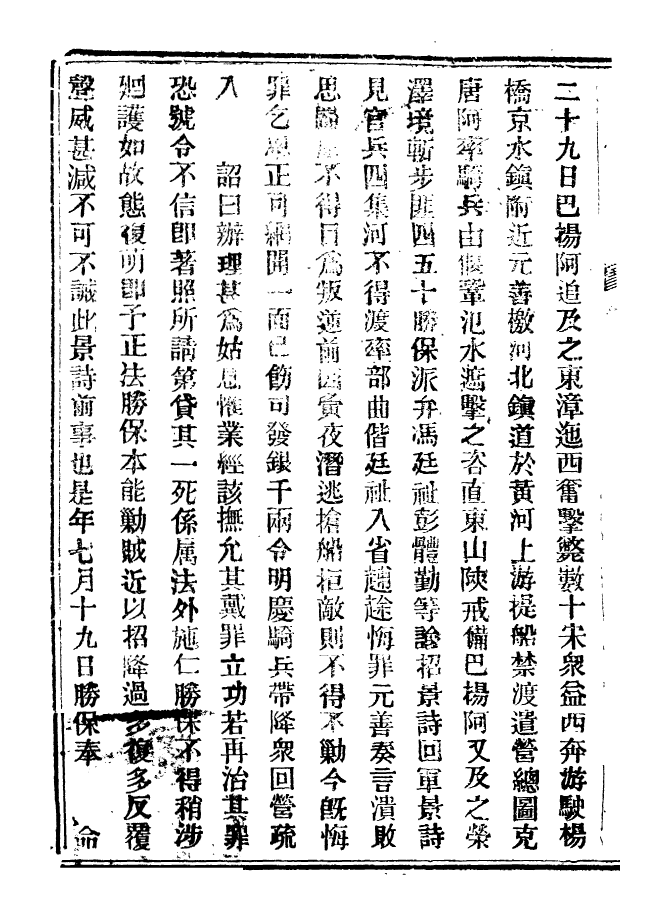 二十九日巴揚阿追及之東漳迤西奮擊斃數十宋衆益西奔游駛楊
橋京水鎮附近元善檄河北鎮道於黃河上游提船禁渡遣營總圖克
唐阿率騎兵由偃鞏氾水遮擊之咨直東山陝戒備巴揚阿又及之滎
澤境斬步匪四五十勝保派弁馮廷祉彭體勤等諭招景詩回軍景詩
見官兵四集河不得渡率部曲偕廷祉入省趦趄悔罪元善奏言潰散
思歸不得目爲叛逆前因黉夜潛逃搶船拒敵則不得不勦今旣悔
罪乞恩正可網開一面已飭司發銀千兩令明慶騎兵帶降衆回營疏
入　詔曰辦理甚爲姑息惟業經該撫允其戴罪立功若再治其罪
恐號令不信卽著照所請第貸其一死係属法外施仁勝保不得稍涉
廻護如故態復萌卽予正法勝保本能勦賊近以招降過多復多反覆
聲威甚減不可不誡此景詩前事也是年七月十九日勝保奉　命